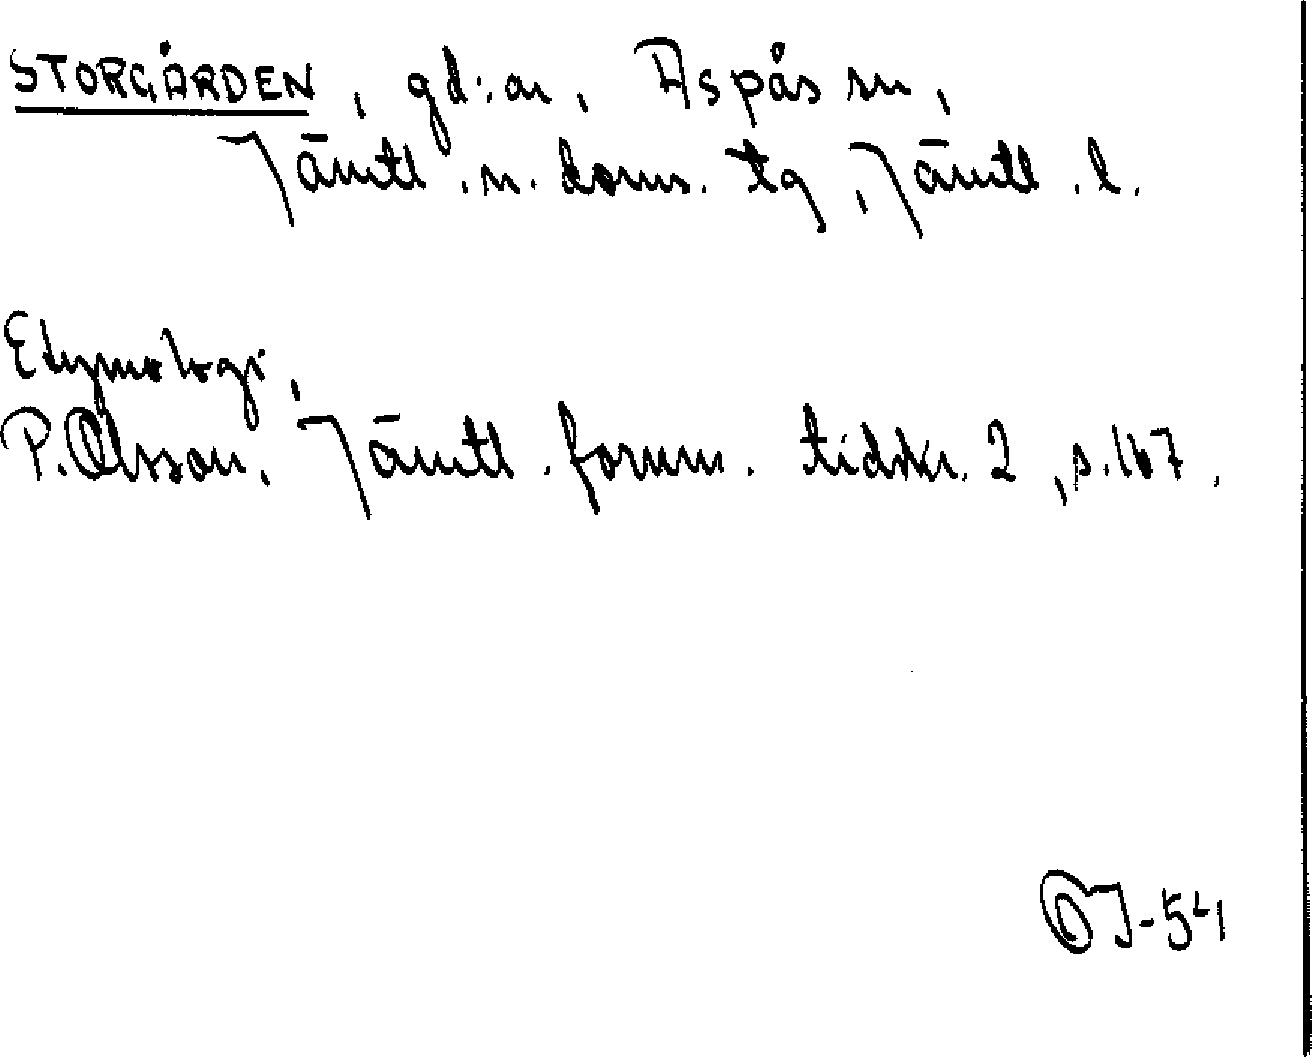 STORGÅRDEN, gd:ar, Aspås sn,
Jämtl. n. doms. tg, Jämtl. l.
Etymologi,
P. Olsson, Jämtl. fornm. tidskr. 2, s. 167.
OJ-54